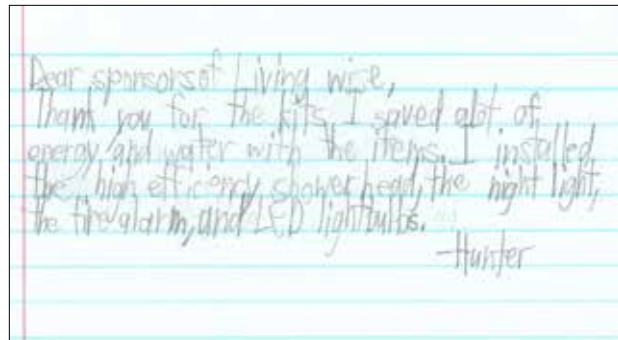 Dear sponsors of Living wise,
Thank you for the kits I saved alot of
energy and water with the items. I installed
the high efficiency shower head, the night light,
the fire alarm, and LED lightbulbs.
-Hunter